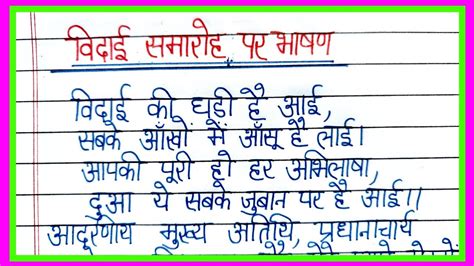 विदाई समारोह पर भाषण
विदाई की घड़ी है आई,
सबके आँखों में आँसू है लाई।
आपकी पूरी हो हर अभिलाषा,
दुआ ये सबके जुबान पर है आई।।
आदरणीय मुख्य अतिथि, प्रधानाचार्य